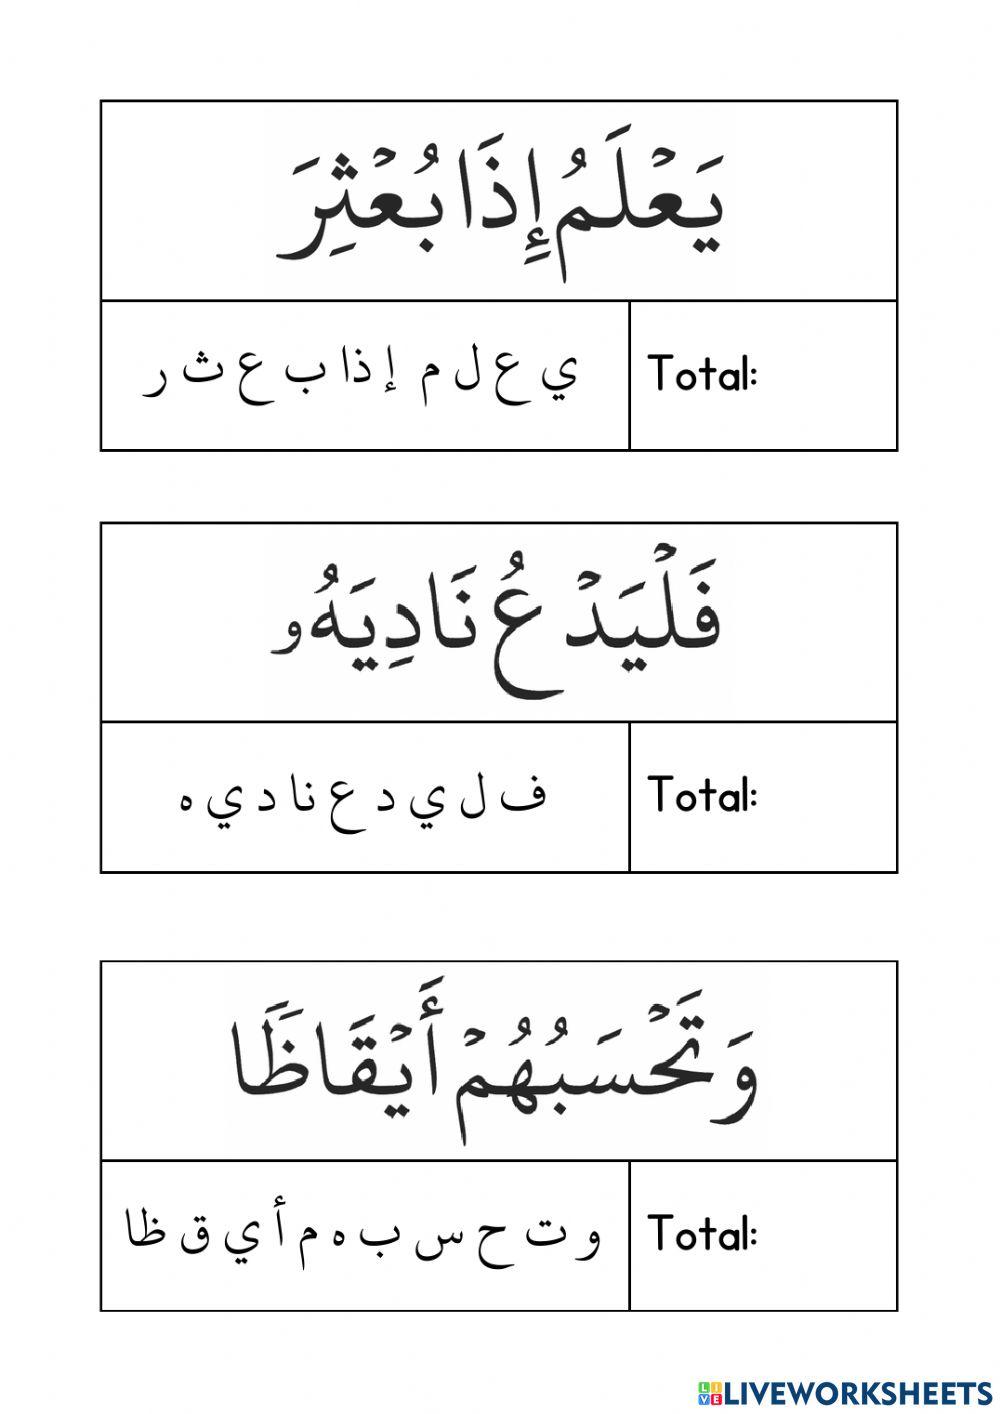 يَعْلَمُ إِذَا بُعْثِرَ
ي ع ل م إ ذا ب ع ث ر
Total:
فَلْيَدْعُ نَادِيَهُۥ
ف ل ي د ع نا د ي ه
Total:
وَتَحْسَبُهُمْ أَيْقَاظًا
و ت ح س ب ه م أ ي ق ظا
Total:
LIVEWORKSHEETS